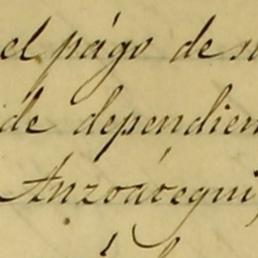 el págo de su
de dependien
Anzoátegui,